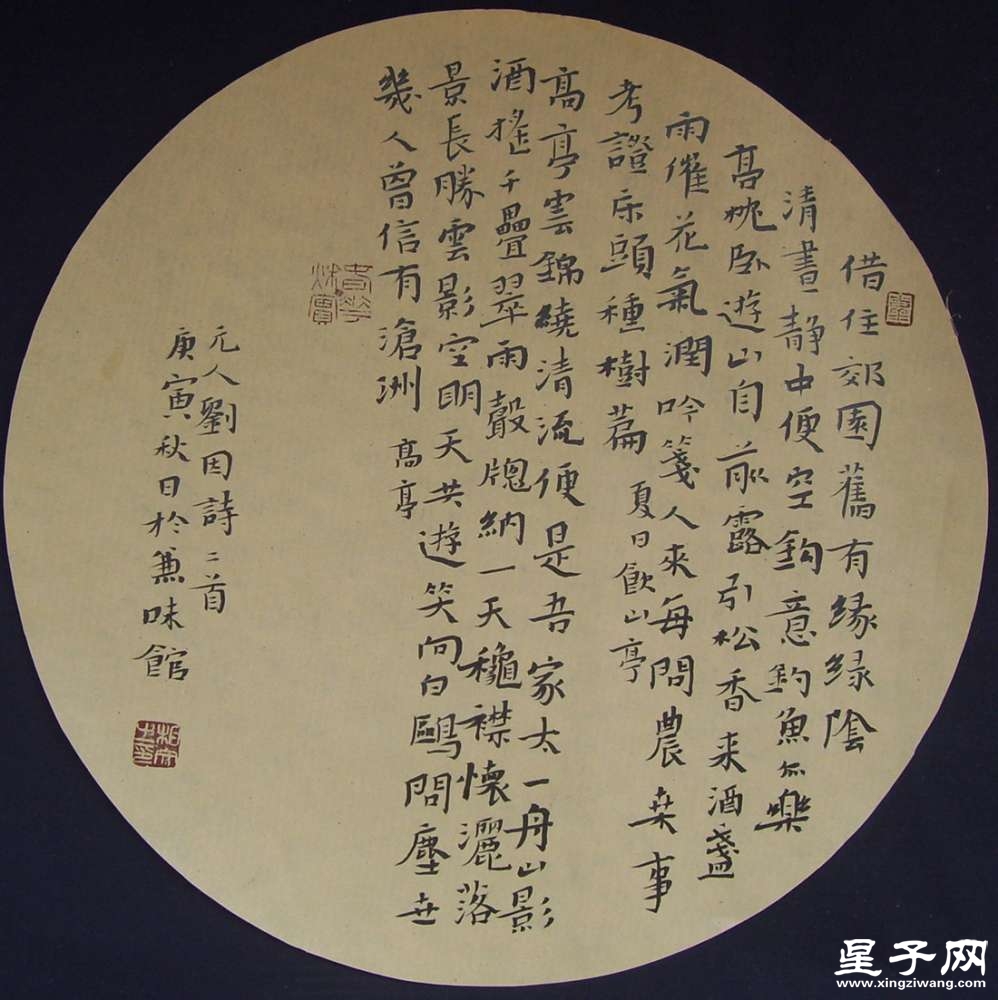 借住郊園舊有緣緑陰
清晝静中便空鈎意釣魚亦樂
高枕卧遊山自前露引松香来酒盞
雨催花氣潤吟箋人来每問農桒事
考證床頭種樹篇 夏日飲山亭
高亭雲錦繞清流便是吾家太一舟山影
酒摇千疊翠雨聲牕納一天穐襟懷灑落
景長勝雲影空明天共遊笑向白鷗問塵世
幾人曾信有滄洲 高亭
春華秋實
元人劉因詩二首
庚寅秋日於兼味館
星子网
www.xingziwang.com